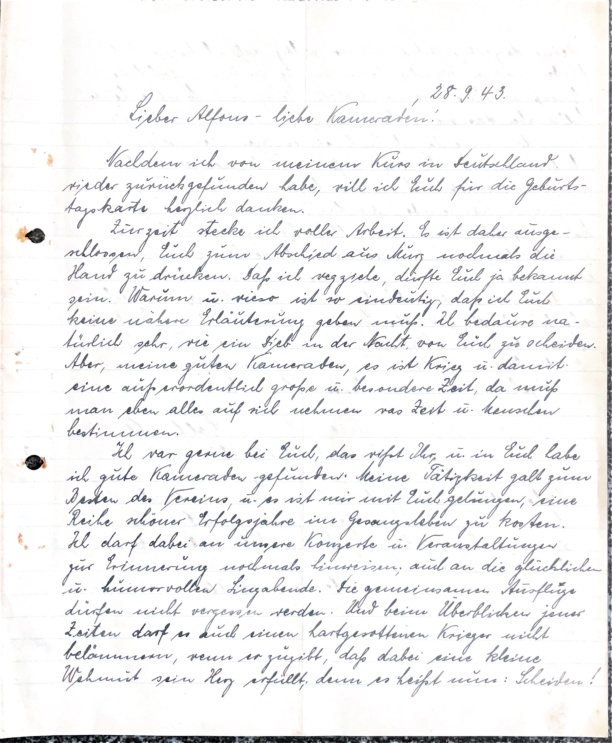 28. 9. 43.
Lieber Alfons - liebe Kameraden!
Nachdem ich von meinem Kurs in Deutschland
wieder zurückgefunden habe, will ich Euch für die Geburts-
tagskarte herzlich danken.
Zurzeit stecke ich voller Arbeit. Es ist daher ausge-
schlossen, Euch zum Abschied aus Murg nochmals die
Hand zu drücken. Daß ich wegziehe, dürfte Euch ja bekannt
sein. Warum u. wieso ist so eindeutig, daß ich Euch
keine nähere Erläuterung geben muß. Ich bedaure na-
türlich sehr, wie ein Dieb in der Nacht von Euch zu scheiden.
Aber, meine guten Kameraden, es ist Krieg u. damit
eine außerordentlich große u. besondere Zeit, da muß
man eben alles auf sich nehmen was Zeit u. Menschen
bestimmen.
Ich war gerne bei Euch, das wißt Ihr, u. in Euch habe
ich gute Kameraden gefunden. Meine Tätigkeit galt zum
Besten des Vereins, u. es ist mir mit Euch gelungen, eine
Reihe schöner Erfolgsjahre im Gesangsleben zu kosten.
Ich darf dabei an unsere Konzerte u. Veranstaltungen
zur Erinnerung nochmals hinweisen; auch an die glücklichen
u. humorvollen Singabende. Die gemeinsamen Ausflüge
dürfen nicht vergessen werden. Und beim Überblicken jener
Zeiten darf es auch einen hartgesottenen Krieger nicht
belämmern, wenn er zugibt, daß dabei eine kleine
Wehmut sein Herz erfüllt, denn es heißt nun: Scheiden!